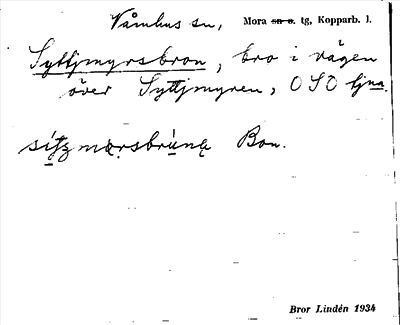 Våmhus sn, Mora sn o. tg, Kopparb. l.
Syttjmyrsbron, bro i vägen
över Syttjmyren, OSO
Bon.
Bror Lindén 1934